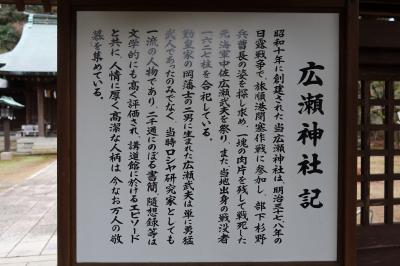 広瀬神社記
昭和十年に創建された当広瀬神社は、明治三十七八年の
日露戦争で、旅順港閉塞作戦に参加し、部下杉野
兵曹長の姿を探し求め、一塊の肉片を残して戦死した
元海軍中佐広瀬武夫を祭り、また、当地出身の戦没者
一六二七柱を合祀している。
勤皇家の岡藩士の二男に生まれた広瀬武夫は単に勇猛
武人であったのみでなく、当時ロシヤ研究家としても
一流の人物であり、二千通にのぼる書簡、随想録等は
文学的にも高く評価され、講道館に於けるエピソード
と共に、人情に厚く高潔な人柄は、今なお万人の敬
慕を集めている。